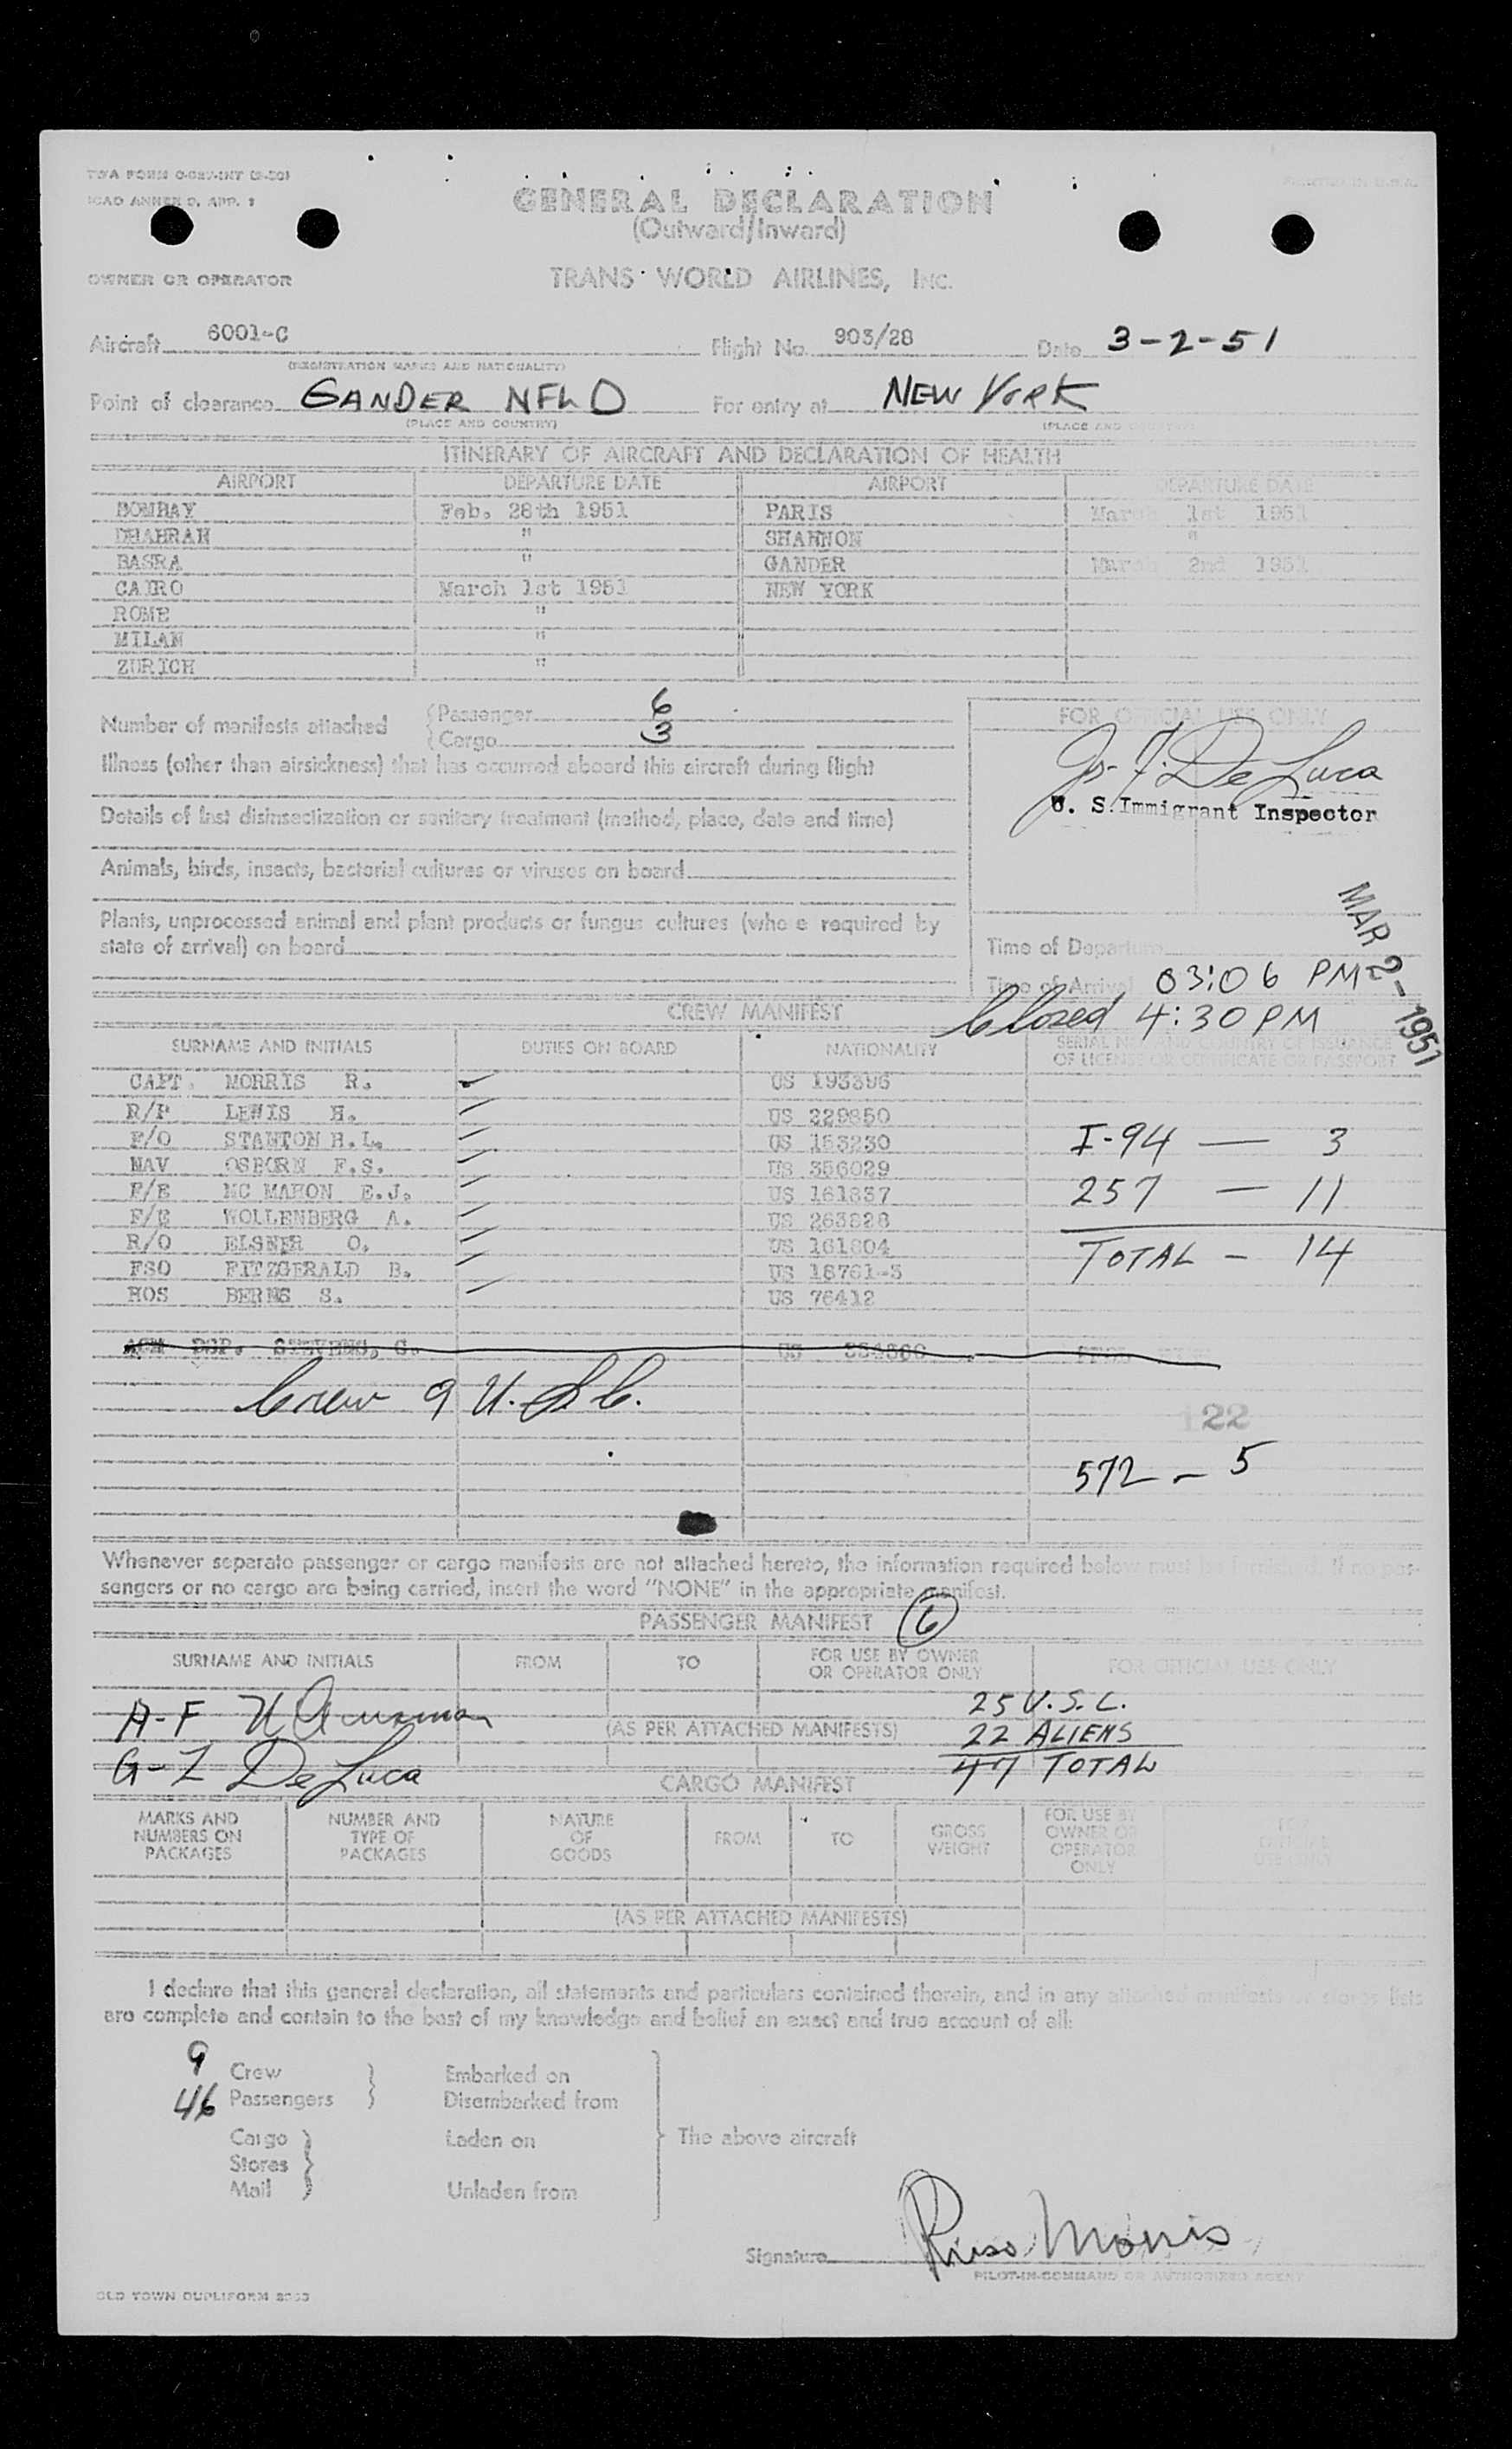 ICAO ANNEX 9, APP. 1
GENERAL DECLARATION
(Outward/Inward)
OWNER OR OPERATOR
TRANS WORLD AIRLINES, INC.
Aircraft 6001-C Flight No. 903/28 Date 3-2-51
(REGISTRATION MARKS AND NATIONALITY)
Point of clearance GANDER NFLD For entry at NEW YORK
(PLACE AND COUNTRY) (PLACE AND COUNTRY)
ITINERARY OF AIRCRAFT AND DECLARATION OF HEALTH
AIRPORT DEPARTURE DATE AIRPORT DEPARTURE DATE
BOMBAY Feb. 28th 1951 PARIS March 1st 1951
DHAHRAN " SHANNON "
BASRA " GANDER March 2nd 1951
CAIRO March 1st 1951 NEW YORK
ROME "
MILAN "
ZURICH "
Number of manifests attached
Passenger 6
Cargo 3
FOR OFFICIAL USE ONLY
Illness (other than airsickness) that has occurred aboard this aircraft during flight
De Luca
U. S. Immigrant Inspector
Details of last disinsectization or sanitary treatment (method, place, date and time)
Animals, birds, insects, bacterial cultures or viruses on board
Plants, unprocessed animal and plant products or fungus cultures (where required by
state of arrival) on board
Time of Departure
MAR 2-1951
Time of Arrival 03:06 PM
Closed 4:30 PM
CREW MANIFEST
SURNAME AND INITIALS DUTIES ON BOARD NATIONALITY SERIAL NO. AND COUNTRY OF ISSUANCE
OF LICENSE OR CERTIFICATE OR PASSPORT
CAPT. MORRIS R. US 193396
R/P LEWIS H. US 229850
F/O STANTON H.L. US 153230
NAV OSBORN F.S. US 356029
F/E MC MAHON E.J. US 161837
F/E WOLLENBERG A. US 263828
R/O ELSNER O. US 161804
FSO FITZGERALD B. US 18761-3
HOS BERNS S. US 76412
I-94 — 3
257 — 11
TOTAL - 14
ACM DSP. STEVENS, G. US
Crew 9 U.S.C.
22
572 - 5
Whenever separate passenger or cargo manifests are not attached hereto, the information required below must be furnished. If no pas-
sengers or no cargo are being carried, insert the word "NONE" in the appropriate manifest.
PASSENGER MANIFEST 6
SURNAME AND INITIALS FROM TO FOR USE BY OWNER
OR OPERATOR ONLY
FOR OFFICIAL USE ONLY
A-F
25 U.S.C.
(AS PER ATTACHED MANIFESTS) 22 ALIENS
G-Z De Luca
47 TOTAL
CARGO MANIFEST
MARKS AND
NUMBERS ON
PACKAGES
NUMBER AND
TYPE OF
PACKAGES
NATURE
OF
GOODS
FROM TO
GROSS
WEIGHT
FOR USE BY
OWNER OR
OPERATOR
ONLY
FOR
OFFICIAL
USE ONLY
(AS PER ATTACHED MANIFESTS)
I declare that this general declaration, all statements and particulars contained therein, and in any attached manifests or stores lists
are complete and contain to the best of my knowledge and belief an exact and true account of all:
9 Crew Embarked on
46 Passengers Disembarked from
Cargo Laden on The above aircraft
Stores
Mail Unladen from
Signature Russ Morris
PILOT-IN-COMMAND OR AUTHORIZED AGENT